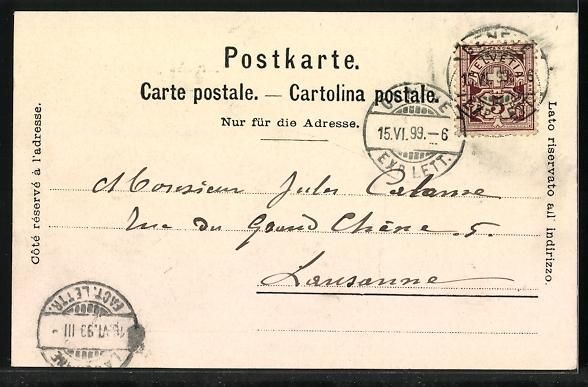 Postkarte.
Carte postale. — Cartolina postale.
Nur für die Adresse.
Côté réservé à l'adresse.
Lato riservato all indirizzo.
HELVETIA
15.VI.99.-6
EXP. LETT.
Monsieur Jules
Rue du Grand Chêne. 5.
Lausanne
FACT. LETTR.
VI.99 III
LAUSANNE